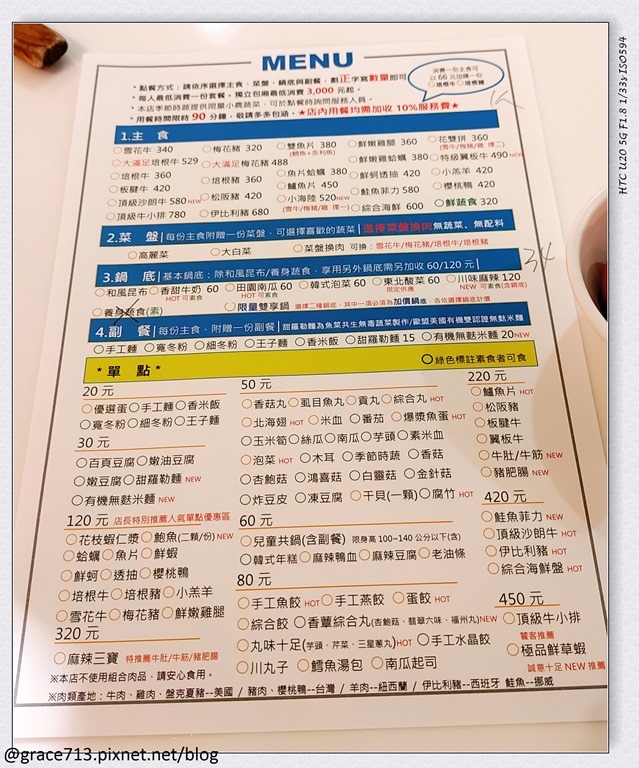 MENU
*點餐方式：請依序選擇主食、菜盤、鍋底與副餐，劃正字寫數量即可
*每人最低消費一份套餐，獨立包廂最低消費 3,000 元起。
*本店季節時蔬提供限量小農蔬菜，可於點餐時詢問服務人員。
*用餐時間限時 90 分鐘，敬請多多包涵。★店內用餐均需加收 10%服務費★
消費一份主食可
以 66 元加購一份
1.主 食
○雪花牛 340 ○梅花豬 320 ○雙魚片 380 ○鮮嫩雞腿 360 ○花雙拼 360
(鯛魚+多利魚) (雪牛/梅豬/雞 擇二)
○大滿足培根牛 529 ○大滿足梅花豬 488 ○魚片蛤蠣 380 ○鮮嫩雞蛤蠣 380 ○特級翼板牛 490 NEW
○培根牛 360 ○培根豬 360 ○鱸魚片 450 ○鮮蚵透抽 420 ○小羔羊 420
○板腱牛 420 ○松阪豬 420 ○小海陸 520 NEW ○鮭魚菲力 580 ○櫻桃鴨 420
○頂級沙朗牛 580 NEW (雪牛/梅豬/雞 擇一)
○頂級牛小排 780 ○伊比利豬 680 ○綜合海鮮 600 ○鮮蔬食 320
2.菜 盤｜每份主食附贈一份菜盤，可選擇喜歡的蔬菜 選擇菜盤換肉無蔬菜、無配料
○高麗菜 ○大白菜 ○菜盤換肉 可換：雪花牛/梅花豬/培根牛/培根豬
3.鍋 底｜基本鍋底：除和風昆布/養身蔬食，享用另外鍋底需另加收 60/120 元｜
○和風昆布 ○香甜牛奶 60 ○田園南瓜 60 ○韓式泡菜 60 ○東北酸菜 60 ○川味麻辣 120
HOT 可素食 HOT 可素食 限定供應 NEW 可素食(含鍋底)
○養身蔬食(素) ○限量雙享鍋 選擇二種鍋底，其中一項必須為加價鍋底，各依選擇鍋底計價
4.副 餐｜每份主食，附贈一份副餐｜甜羅勒麵為魚菜共生無毒蔬菜製作/歐盟美國有機雙認證無麩米麵
○手工麵 ○寬冬粉 ○細冬粉 ○王子麵 ○香米飯 ○甜羅勒麵 15 ○有機無麩米麵 20 NEW
*單 點* ○綠色標註素食者可食
20 元
○優選蛋 ○手工麵 ○香米飯
○寬冬粉 ○細冬粉 ○王子麵
30 元
○百頁豆腐 ○嫩油豆腐
○嫩豆腐 ○甜羅勒麵 NEW
○有機無麩米麵 NEW
120 元 店長特別推薦人氣單點優惠區
○花枝蝦仁漿 ○鮑魚(二顆/份) NEW
○蛤蠣 ○魚片 ○鮮蝦
○鮮蚵 ○透抽 ○櫻桃鴨
○培根牛 ○培根豬 ○小羔羊
○雪花牛 ○梅花豬 ○鮮嫩雞腿
320 元
○麻辣三寶 特推薦牛肚/牛筋/豬肥腸
50 元
○香菇丸 ○虱目魚丸 ○貢丸 ○綜合丸 HOT
○北海翅 HOT ○米血 ○番茄 ○爆漿魚蛋 HOT
○玉米筍 ○絲瓜 ○南瓜 ○芋頭 ○素米血
○泡菜 HOT ○木耳 ○季節時蔬 ○香菇
○杏鮑菇 ○鴻喜菇 ○白靈菇 ○金針菇
○炸豆皮 ○凍豆腐 ○干貝(一顆) ○腐竹 HOT
60 元
○兒童共鍋(含副餐) 限身高 100~140 公分以下(含)
○韓式年糕 ○麻辣鴨血 ○麻辣豆腐 ○老油條
80 元
○手工魚餃 HOT ○手工燕餃 ○蛋餃 HOT
○綜合餃 ○香蕈綜合丸(杏鮑菇、翡翠六味、福州丸) NEW
○丸味十足(芋頭、芹菜、三星蔥丸) HOT ○手工水晶餃
○川丸子 ○鱈魚湯包 ○南瓜起司
220 元
○鱸魚片 HOT
○松阪豬
○板腱牛
○翼板牛
○牛肚/牛筋 NEW
○豬肥腸 NEW
420 元
○鮭魚菲力 NEW
○頂級沙朗牛 HOT
○伊比利豬 HOT
○綜合海鮮盤 HOT
450 元
○頂級牛小排
饕客推薦
○極品鮮草蝦
誠意十足 NEW 推薦
※本店不使用組合肉品，請安心食用。
※肉類產地：牛肉、雞肉、盤克夏豬--美國 / 豬肉、櫻桃鴨--台灣 / 羊肉--紐西蘭 / 伊比利豬--西班牙 鮭魚--挪威
HTC U20 5G F1.8 1/33s ISO594
@grace713.pixnet.net/blog